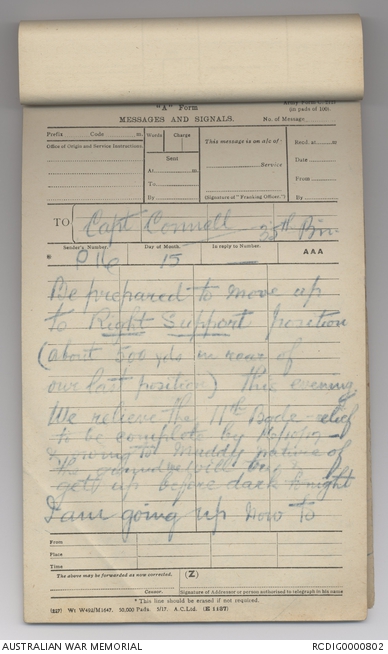 "A" Form
Army Form C. 2121
(in pads of 100).
MESSAGES AND SIGNALS.
No. of Message
Prefix Code m.
Words Charge
This message is on a/c of :
Recd. at m.
Office of Origin and Service Instructions.
Sent
Date
At m.
Service
From
To
By
(Signature of "Franking Officer.")
By
TO Capt Connell 35th Bn
Sender's Number. Day of Month. In reply to Number. AAA
* P 116 15 —
Be prepared to move up
to Right Support position
(about 500 yds in rear of
our last position) this evening
We relieve the 11th Bgde relief
to be complete by
owing to muddy nature of
ground will
get up before dark tonight
I am going up now to
From
Place
Time
The above may be forwarded as now corrected. (Z)
Censor. Signature of Addressor or person authorised to telegraph in his name
* This line should be erased if not required.
(827) Wt W492/M1647. 10,000 Pads. 5/17. A.C.Ltd. (E 1187)
AUSTRALIAN WAR MEMORIAL
RCDIG0000802